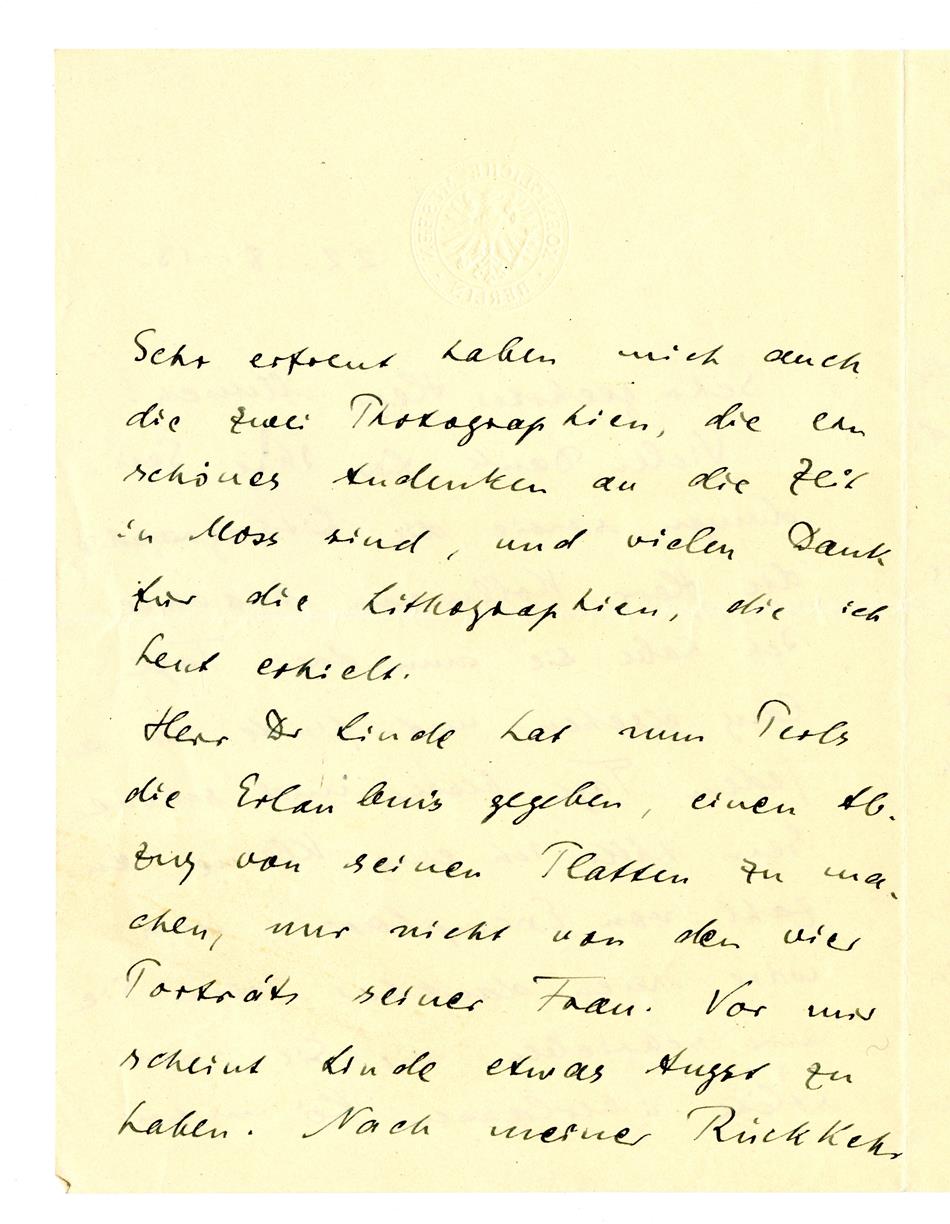 Sehr erfreut haben mich auch
die zwei Photographien, die ein
schönes Andenken an die Zeit
in Moss sind, und vielen Dank
für die Lithographien, die ich
heut erhielt.
Herr Dr Linde hat nun
die Erlaubnis gegeben, einen Ab-
zug von seinen Platten zu ma-
chen, nur nicht von den vier
Porträts seiner Frau. Vor mir
scheint Linde etwas Angst zu
haben. Nach meiner Rückkehr